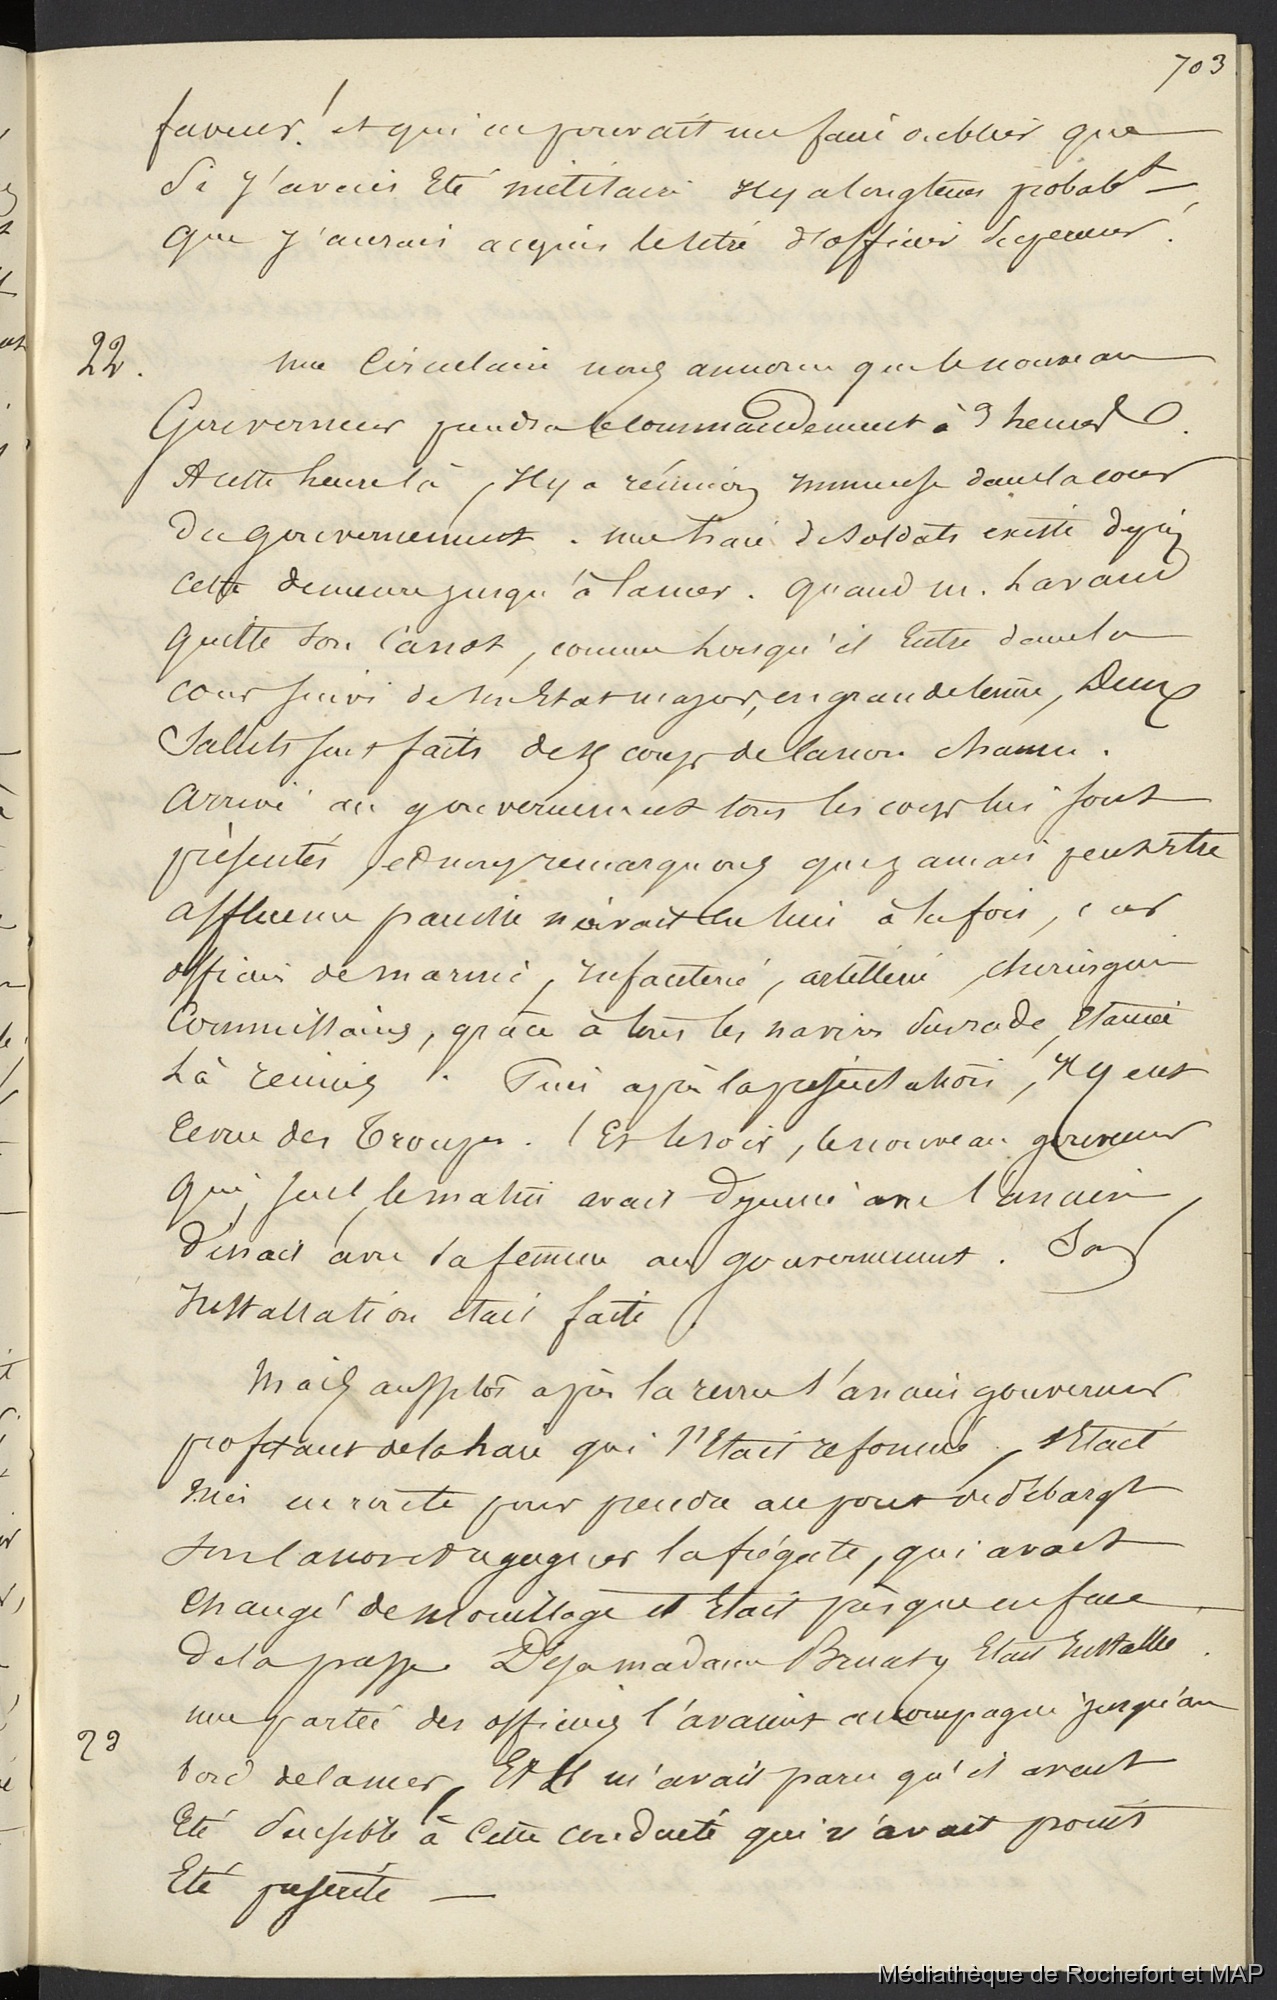 703
faveur! et qui ne pouvait me faire oublier que
Si j'avais Eté militaire Il y a longtems probablt —
que j'aurais acquis le titre d'officier Supérieur.
22. une Circulaire nous annonce que le nouveau
Gouverneur prendra le commandement à 9 heures.
A cette heure là, Il y a réunion Immense dans la cour
Du gouvernement. une haie de soldats existe depuis
cette demeure jusqu'à la mer. quand m. Lavaud
quitte son Canot, comme lorsqu'il Entre dans la
cour suivi de son Etat major, en grande tenue, Deux
Saluts sont faits de coups de canon chacun.
Arrivé au gouvernement tous les corps lui sont
présentés, et nous remarquons que jamais peut être
affluence pareille n'avait eu lieu à la fois, car
officiers de marine, Infanterie, artillerie, chirurgiens
Commissaires, grâce à tous les navires sur rade, Etaient
Là réunis. Puis après la présentation, Il y eut
Revue des Troupes. Et le soir, le nouveau gouverneur
qui, seul, le matin avait Déjeuné avec l'ancien,
Dinait avec sa femme au gouvernement. Son
Installation était faite.
Mais aussitôt après la revue l'ancien gouverneur
profitant de la haie qui s'Etait reformée, s'Etait
mis en route pour prendre au pont de débargt
son canot et regagner la frégate, qui avait
Changé de mouillage et Etait presque en face
De la passe. Déja madame Bruat y Etait Installée.
une partie des officiers l'avaient accompagné jusqu'au
23 bord de la mer, Et Il m'avait paru qu'il avait
Eté sensible à Cette conduite qui n'avait point
Eté
Médiathèque de Rochefort et MAP